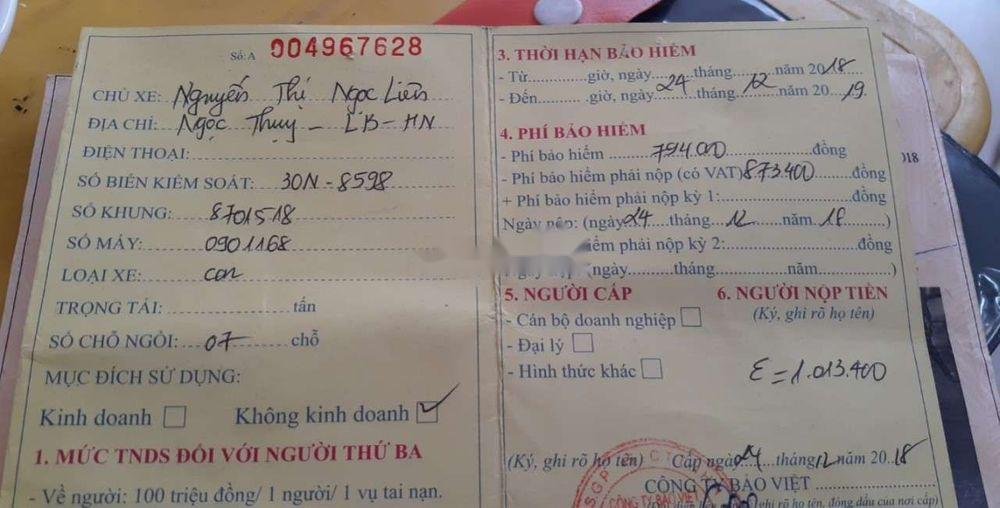 Số: A 004967628
CHỦ XE: Nguyễn Thị Ngọc Liên
ĐỊA CHỈ: Ngọc Thụy - LB - HN
ĐIỆN THOẠI:
SỐ BIỂN KIỂM SOÁT: 30N - 8598
SỐ KHUNG: 8701518
SỐ MÁY: 0901168
LOẠI XE: con
TRỌNG TẢI: tấn
SỐ CHỖ NGỒI: 07 chỗ
MỤC ĐÍCH SỬ DỤNG:
Kinh doanh Không kinh doanh
1. MỨC TNDS ĐỐI VỚI NGƯỜI THỨ BA
- Về người: 100 triệu đồng/ 1 người/ 1 vụ tai nạn.
3. THỜI HẠN BẢO HIỂM
- Từ giờ, ngày 24 tháng 12 năm 2018
- Đến giờ, ngày 24 tháng 12 năm 2019
4. PHÍ BẢO HIỂM
- Phí bảo hiểm 794.000 đồng
- Phí bảo hiểm phải nộp (có VAT) 873.400 đồng
+ Phí bảo hiểm phải nộp kỳ 1: đồng
Ngày nộp: (ngày 24 tháng 12 năm 18)
hiểm phải nộp kỳ 2: đồng
(ngày tháng năm )
5. NGƯỜI CẤP
- Cán bộ doanh nghiệp
- Đại lý
- Hình thức khác
6. NGƯỜI NỘP TIỀN
(Ký, ghi rõ họ tên)
Σ = 1.013.400
(Ký, ghi rõ họ tên) Cấp ngày 24 tháng 12 năm 2018
CÔNG TY BẢO VIỆT
ghi rõ họ tên, đóng dấu của nơi cấp)
CÔNG TY BẢO VIỆT
018